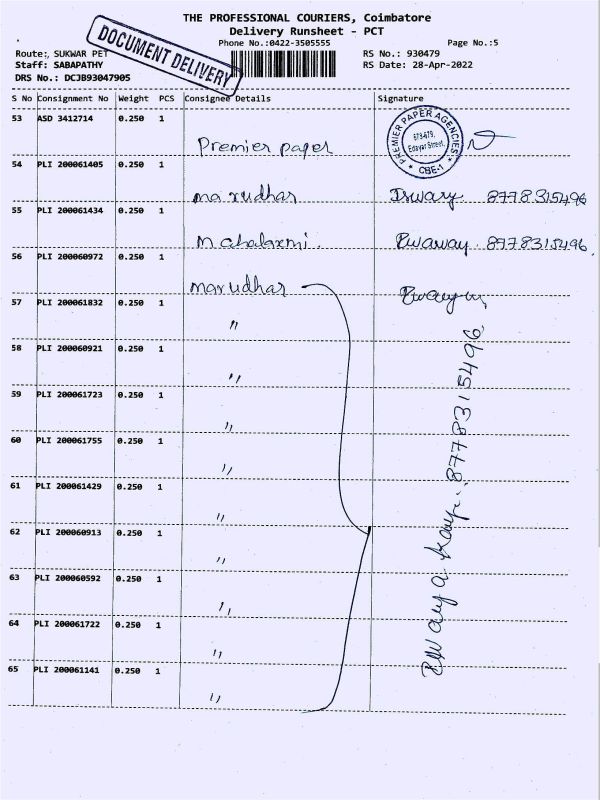 THE PROFESSIONAL COURIERS, Coimbatore
Delivery Runsheet - PCT
Phone No.:0422-3505555 Page No.:5
DOCUMENT DELIVERY
Route:, SUKWAR PET RS No.: 930479
Staff: SABAPATHY RS Date: 28-Apr-2022
DRS No.: DCJB93047905
S No Consignment No Weight PCS Consignee Details Signature
53 ASD 3412714 0.250 1
Premier paper
PREMIER PAPER AGENCIES
Edayar Street,
* CBE-1 *
54 PLI 200061405 0.250 1
marudhar 8778315496
55 PLI 200061434 0.250 1
Mahalaxmi. 8778315496
56 PLI 200060972 0.250 1
marudhar
57 PLI 200061832 0.250 1
"
58 PLI 200060921 0.250 1
"
59 PLI 200061723 0.250 1
"
60 PLI 200061755 0.250 1
"
61 PLI 200061429 0.250 1
"
62 PLI 200060913 0.250 1
"
63 PLI 200060592 0.250 1
"
64 PLI 200061722 0.250 1
"
65 PLI 200061141 0.250 1
"
8778315496